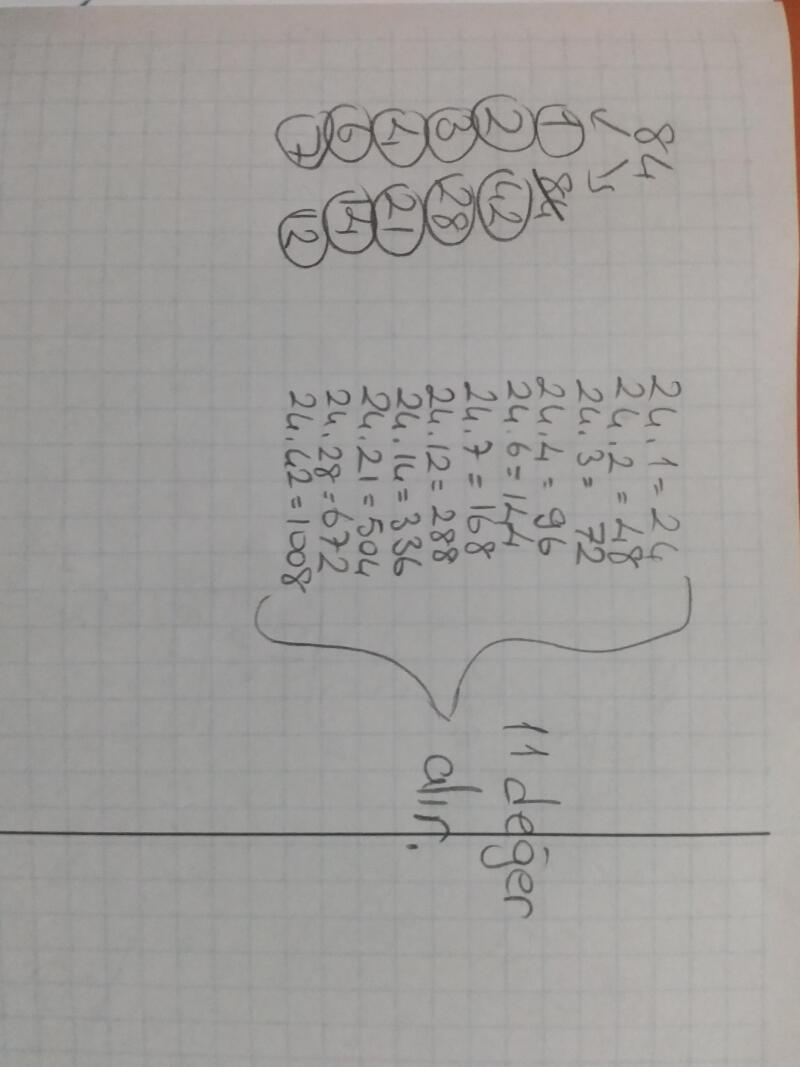 84
1 84
2 42
3 28
4 21
6 14
7 12
24.1=24
24.2=48
24.3=72
24.4=96
24.6=144
24.7=168
24.12=288
24.14=336
24.21=504
24.28=672
24.42=1008
11 değer
alır.